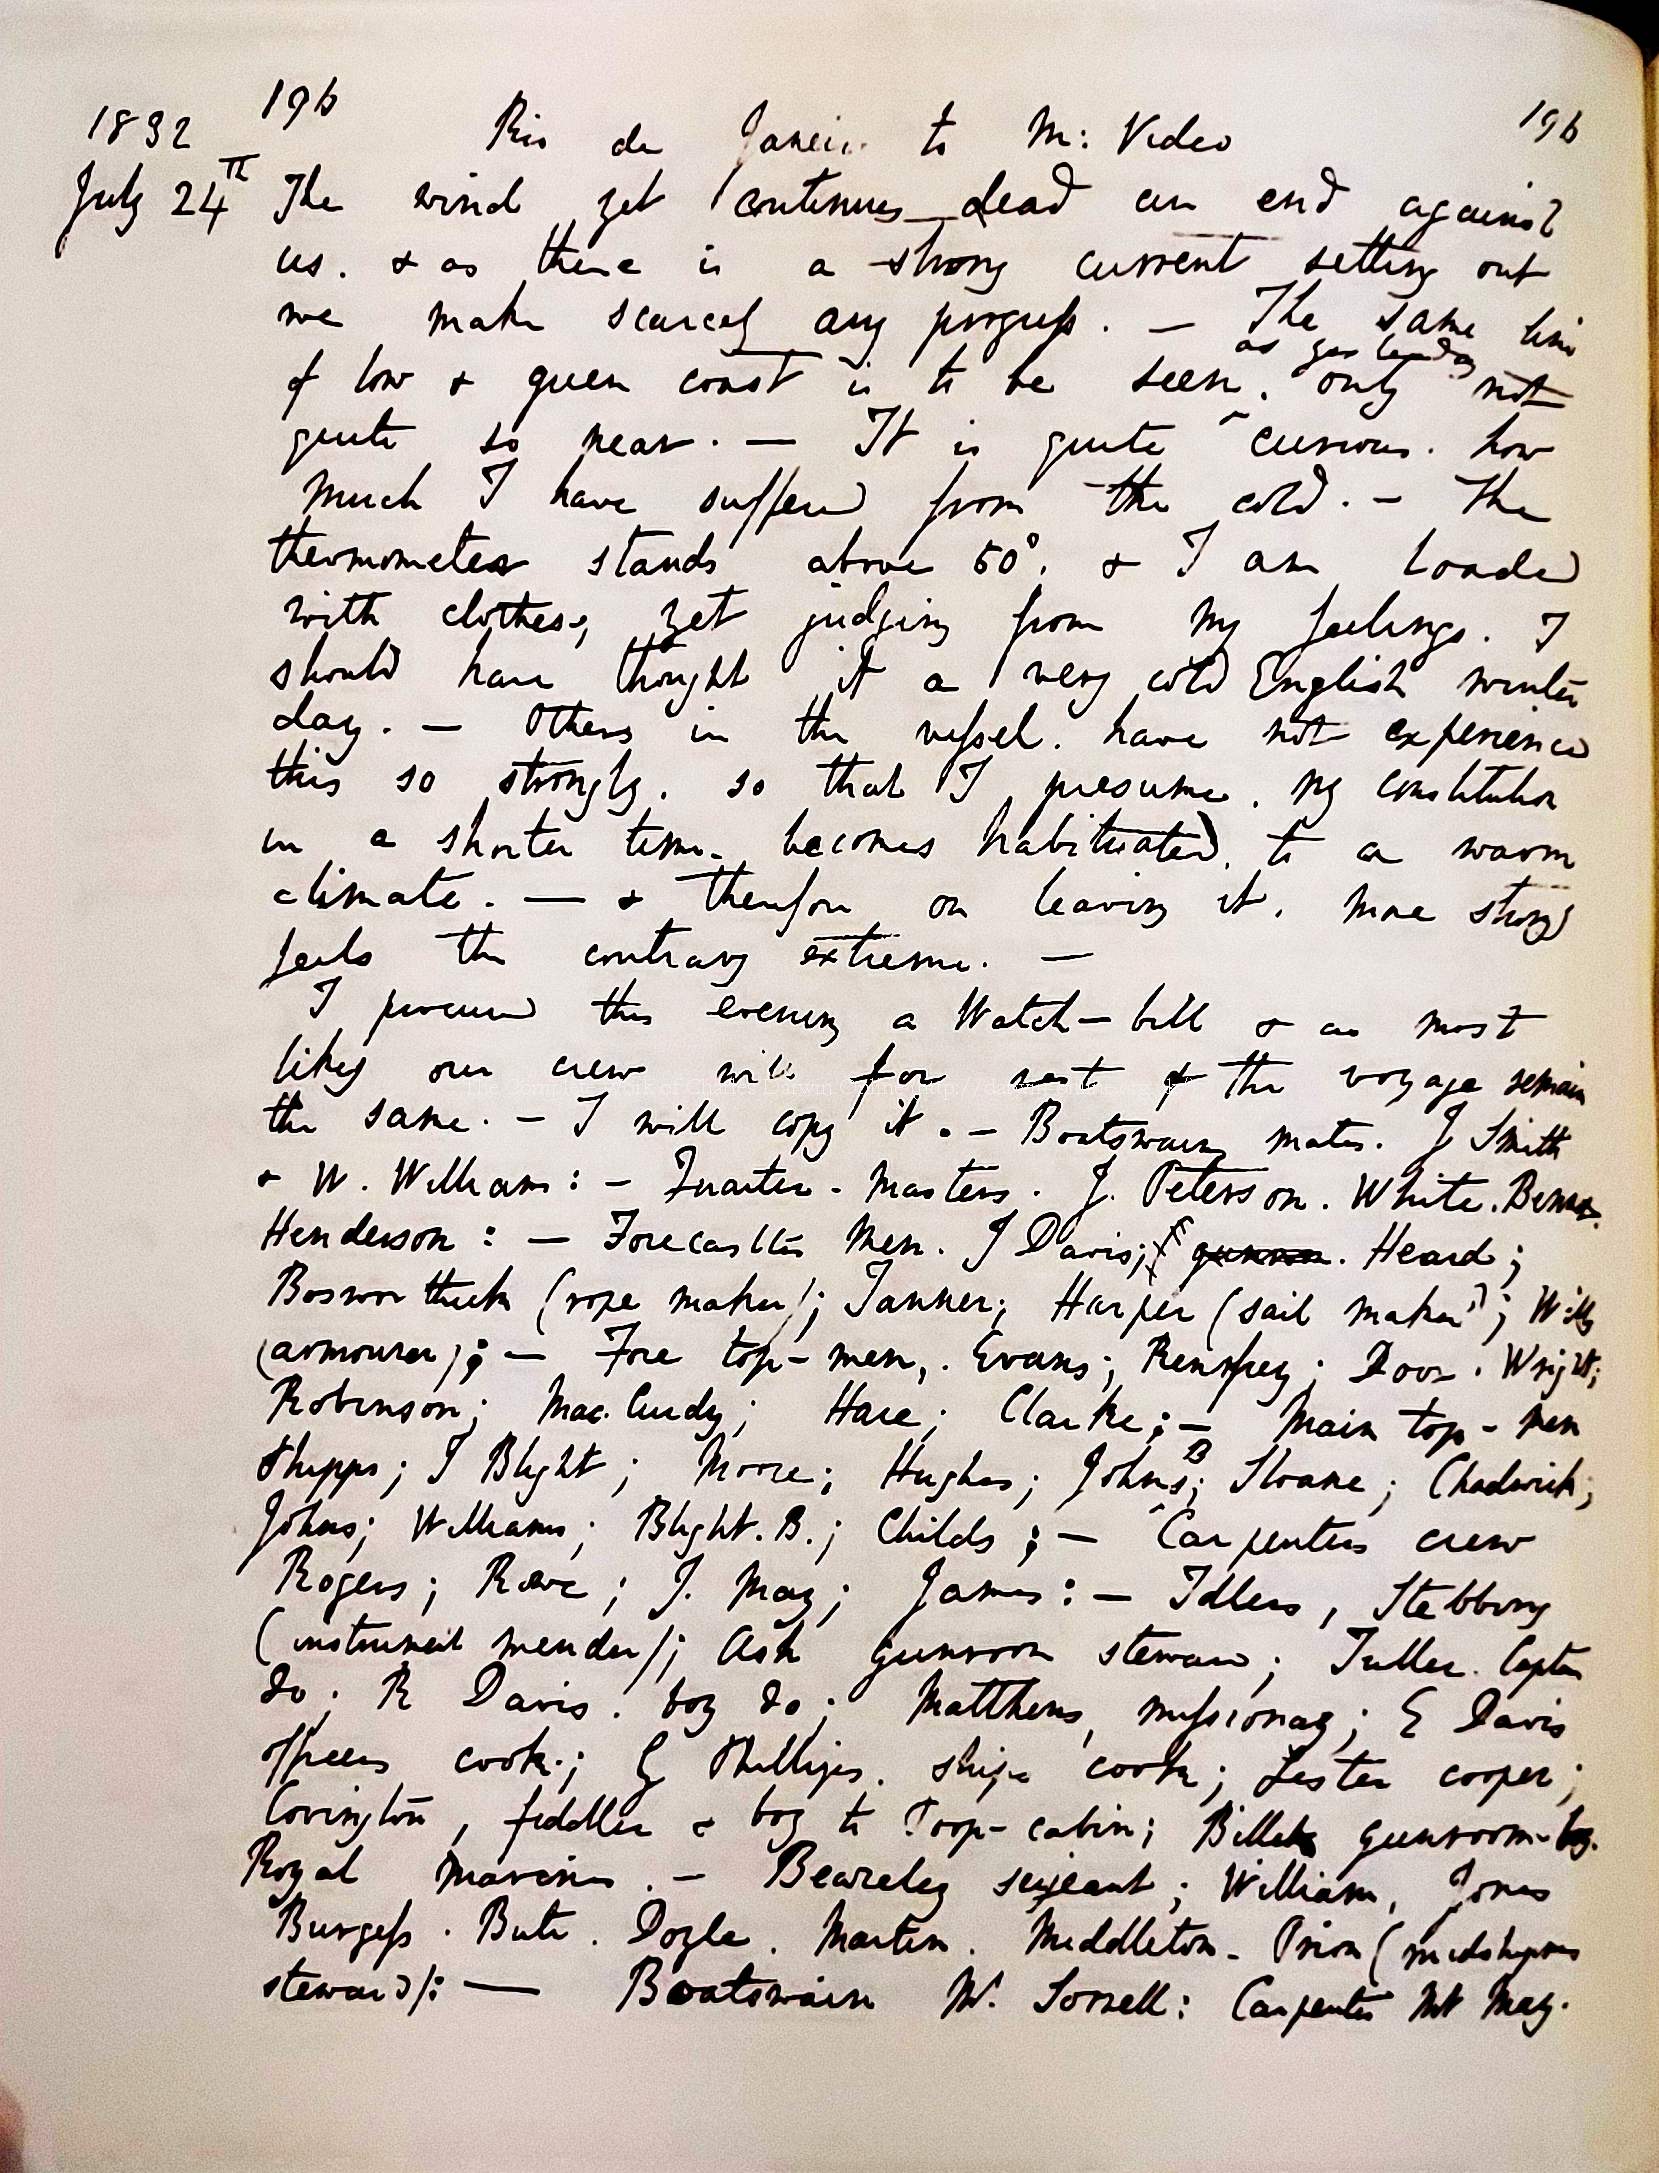 196 196
1832 Rio de Janeiro to M: Video
July 24th The wind yet continues dead an end against
us. & as there is a strong current setting out
we make scarcely any progress. — The same line
as yesterday
of low & green coast is to be seen. only not
quite so near. — It is quite curious. how
much I have suffered from the cold. — The
thermometer stands above 50°. & I am loaded
with clothes, yet judging from my feelings. I
should have thought it a very cold English winter
day. — Others in the vessel. have not experienced
this so strongly. so that I presume. my constitution
in a shorter time. becomes habituated, to a warm
climate. — & therefore on leaving it. more strongly
feels the contrary extreme. —
I procured this evening a Watch-bill & as most
likely our crew will for rest of the voyage remain
the same. — I will copy it. — Boatswain mates. J Smith
& W. Williams: — Quarter-Masters. J. Peterson. White. Bennet.
Henderson: — Forecastle Men. J Davis; Heard;
Bosworthick (rope maker); Tanner; Harper (sail maker); Wills
(armourer); — Fore top-men,. Evans; Rensfrey; Door. Wright;
Robinson; MacCurdy; Hare; Clarke; — Main top-men
Phipps; J Blight; Moore; Hughes; Johns B; Sloane; Chadwick;
Johns; Williams; Blight. B.; Childs; — Carpenters crew
Rogers; Rowe; J. May; James: — Idlers, Stebbing
(instrument mender); Ash gunroom steward; Fuller. Captain
do; R Davis. boy do; Matthews, missionary; E Davis
officers cook.; G Phillips. ships cook; Lester cooper;
Covington, fiddler & boy to Poop-cabin; Billet gunroom-boy.
Royal Marines. — Beazeley serjeant; Williams, Jones
Burgess. Bute. Doyle. Martin. Middleton. Prior (midshipmens
steward): — Boatswain Mr. Sorrell: Carpenter Mr May.